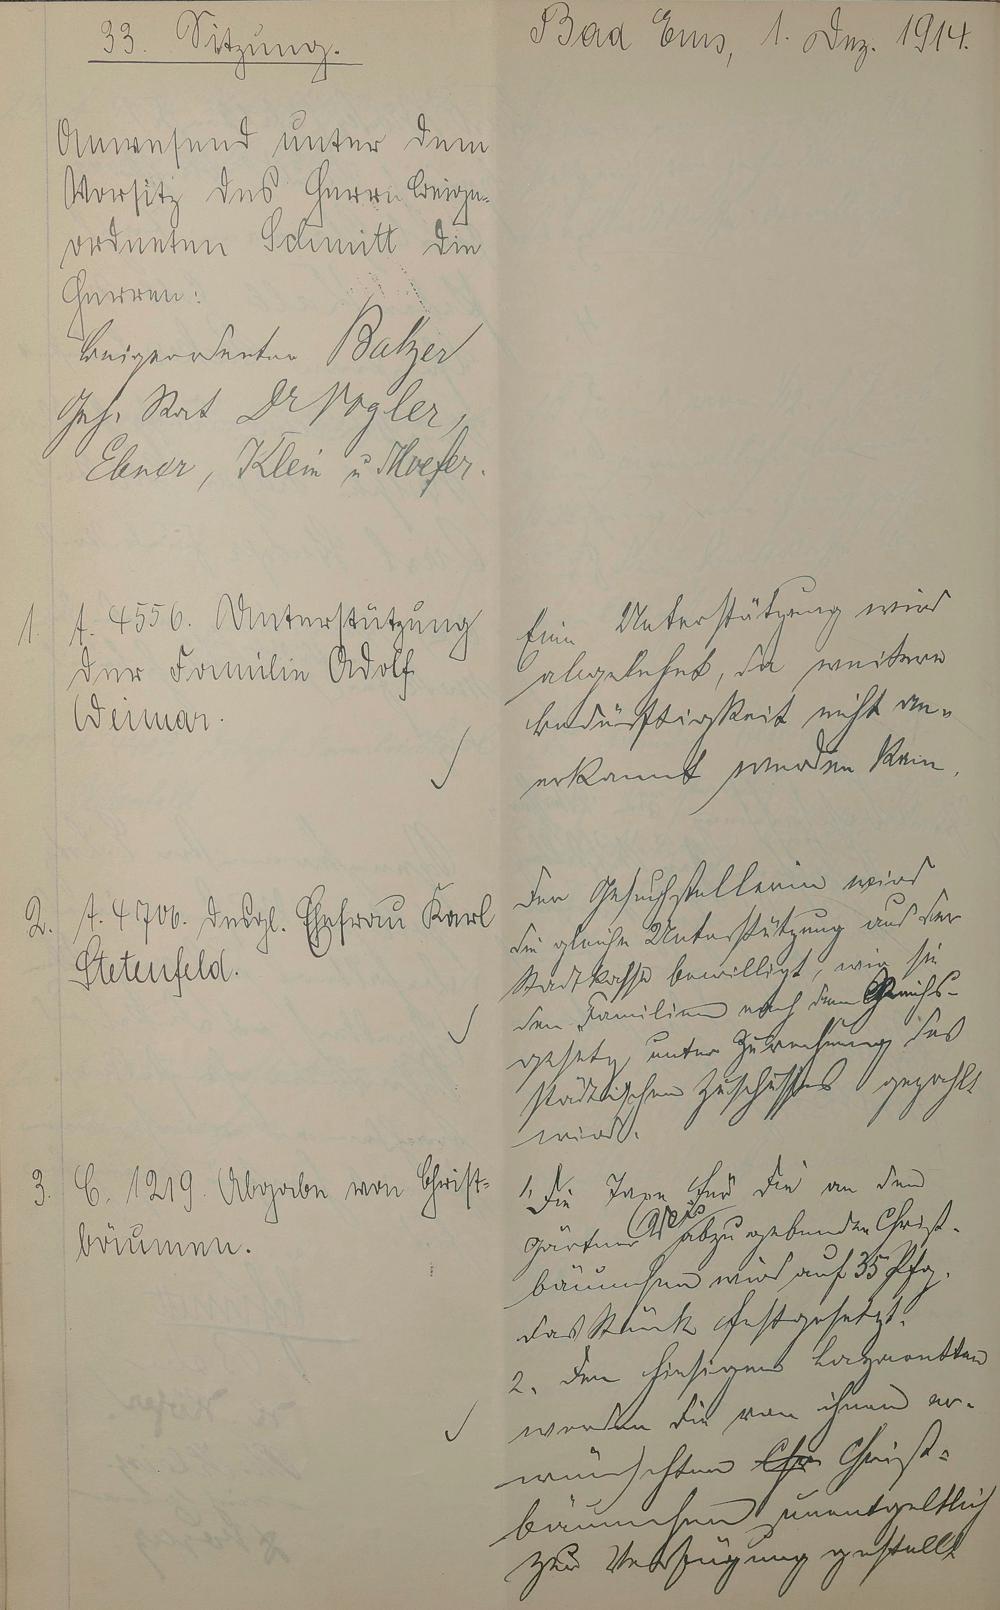 33. Sitzung.
Bad Ems, 1. Dez. 1914.
Anwesend unter dem
Vorsitz des Herrn Beige-
ordneten Schmitt die
Herren:
Beigeordneter Balzer
Geh. Rat Dr Vogler,
Ebner, Klein u Thoefer.
1. A. 4556. Unterstützung
der Familie Adolf
Weimar.
Eine Unterstützung wird
abgelehnt, da weitere
Bedürftigkeit nicht an-
erkannt werden kann.
2. A. 4706. desgl. Ehefrau Karl
Stetenfeld.
Der Gesuchstellerin wird
die gleiche Unterstützung aus der
Stadtkasse bewilligt, wie sie
den Familien nach dem Reichs-
gesetz unter Zurechnung des
städtischen Zuschusses gezahlt
wird.
3. C. 1219. Abgabe von Christ-
bäumen.
1. Die Taxe für die an den
Gärtner abzugebenden Christ-
bäumchen wird auf 35 Pfg.
das Stück festgesetzt.
2. Den hiesigen Lazaretten
werden die von ihnen er-
wünschten Chr Christ-
bäumchen unentgeltlich
zur Verfügung gestellt